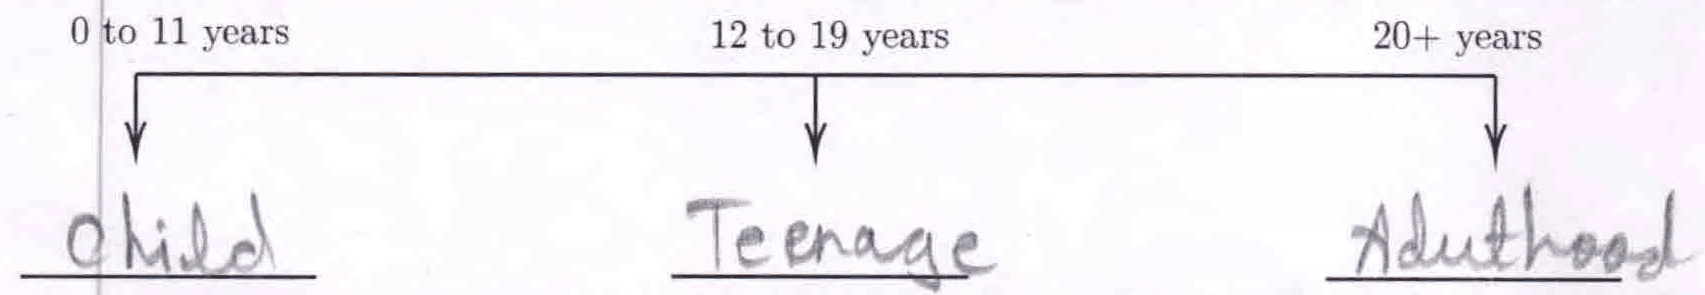 0 to 11 years 12 to 19 years 20+ years
Child Teenage Aduthood